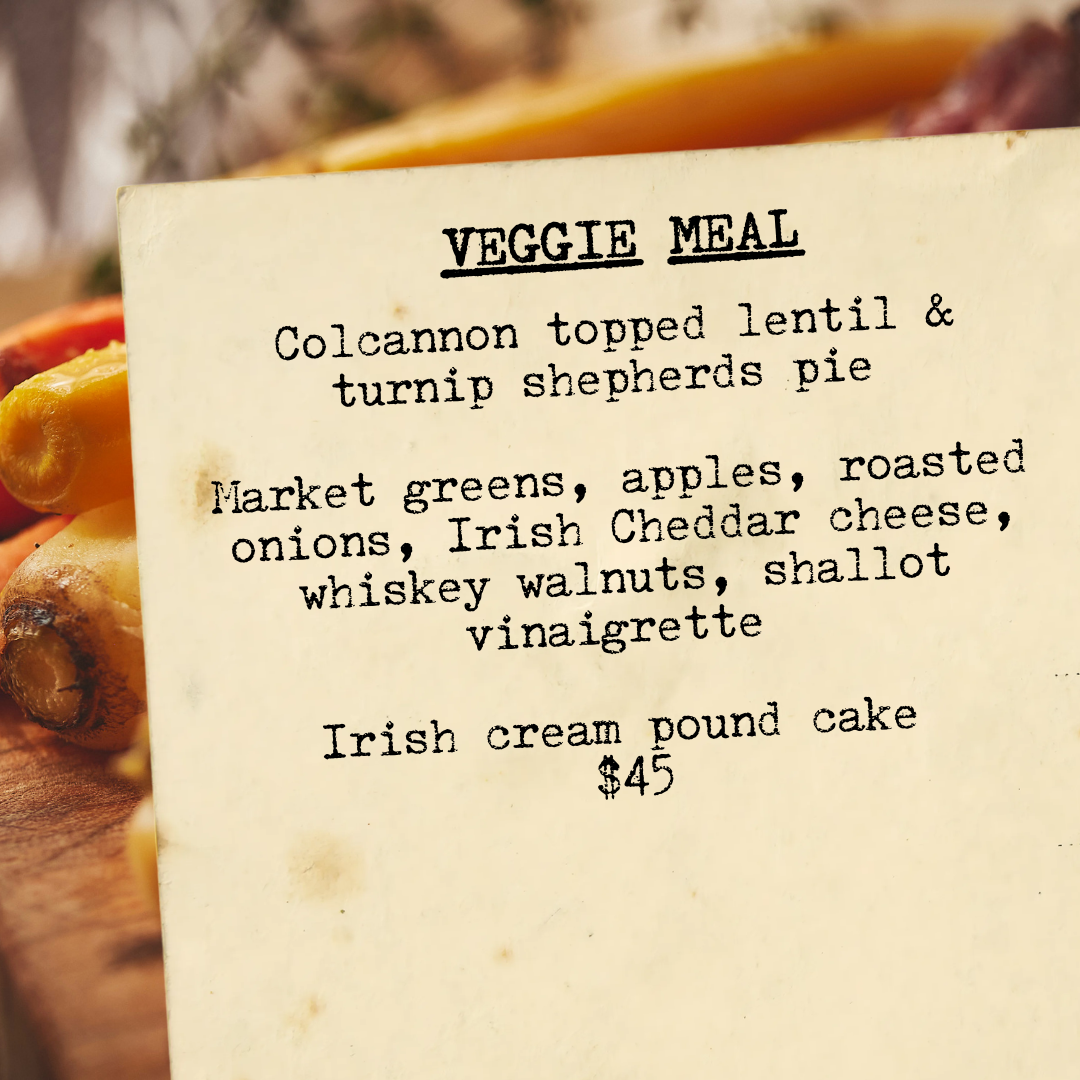 VEGGIE MEAL
Colcannon topped lentil &
turnip shepherds pie
Market greens, apples, roasted
onions, Irish Cheddar cheese,
whiskey walnuts, shallot
vinaigrette
Irish cream pound cake
$45